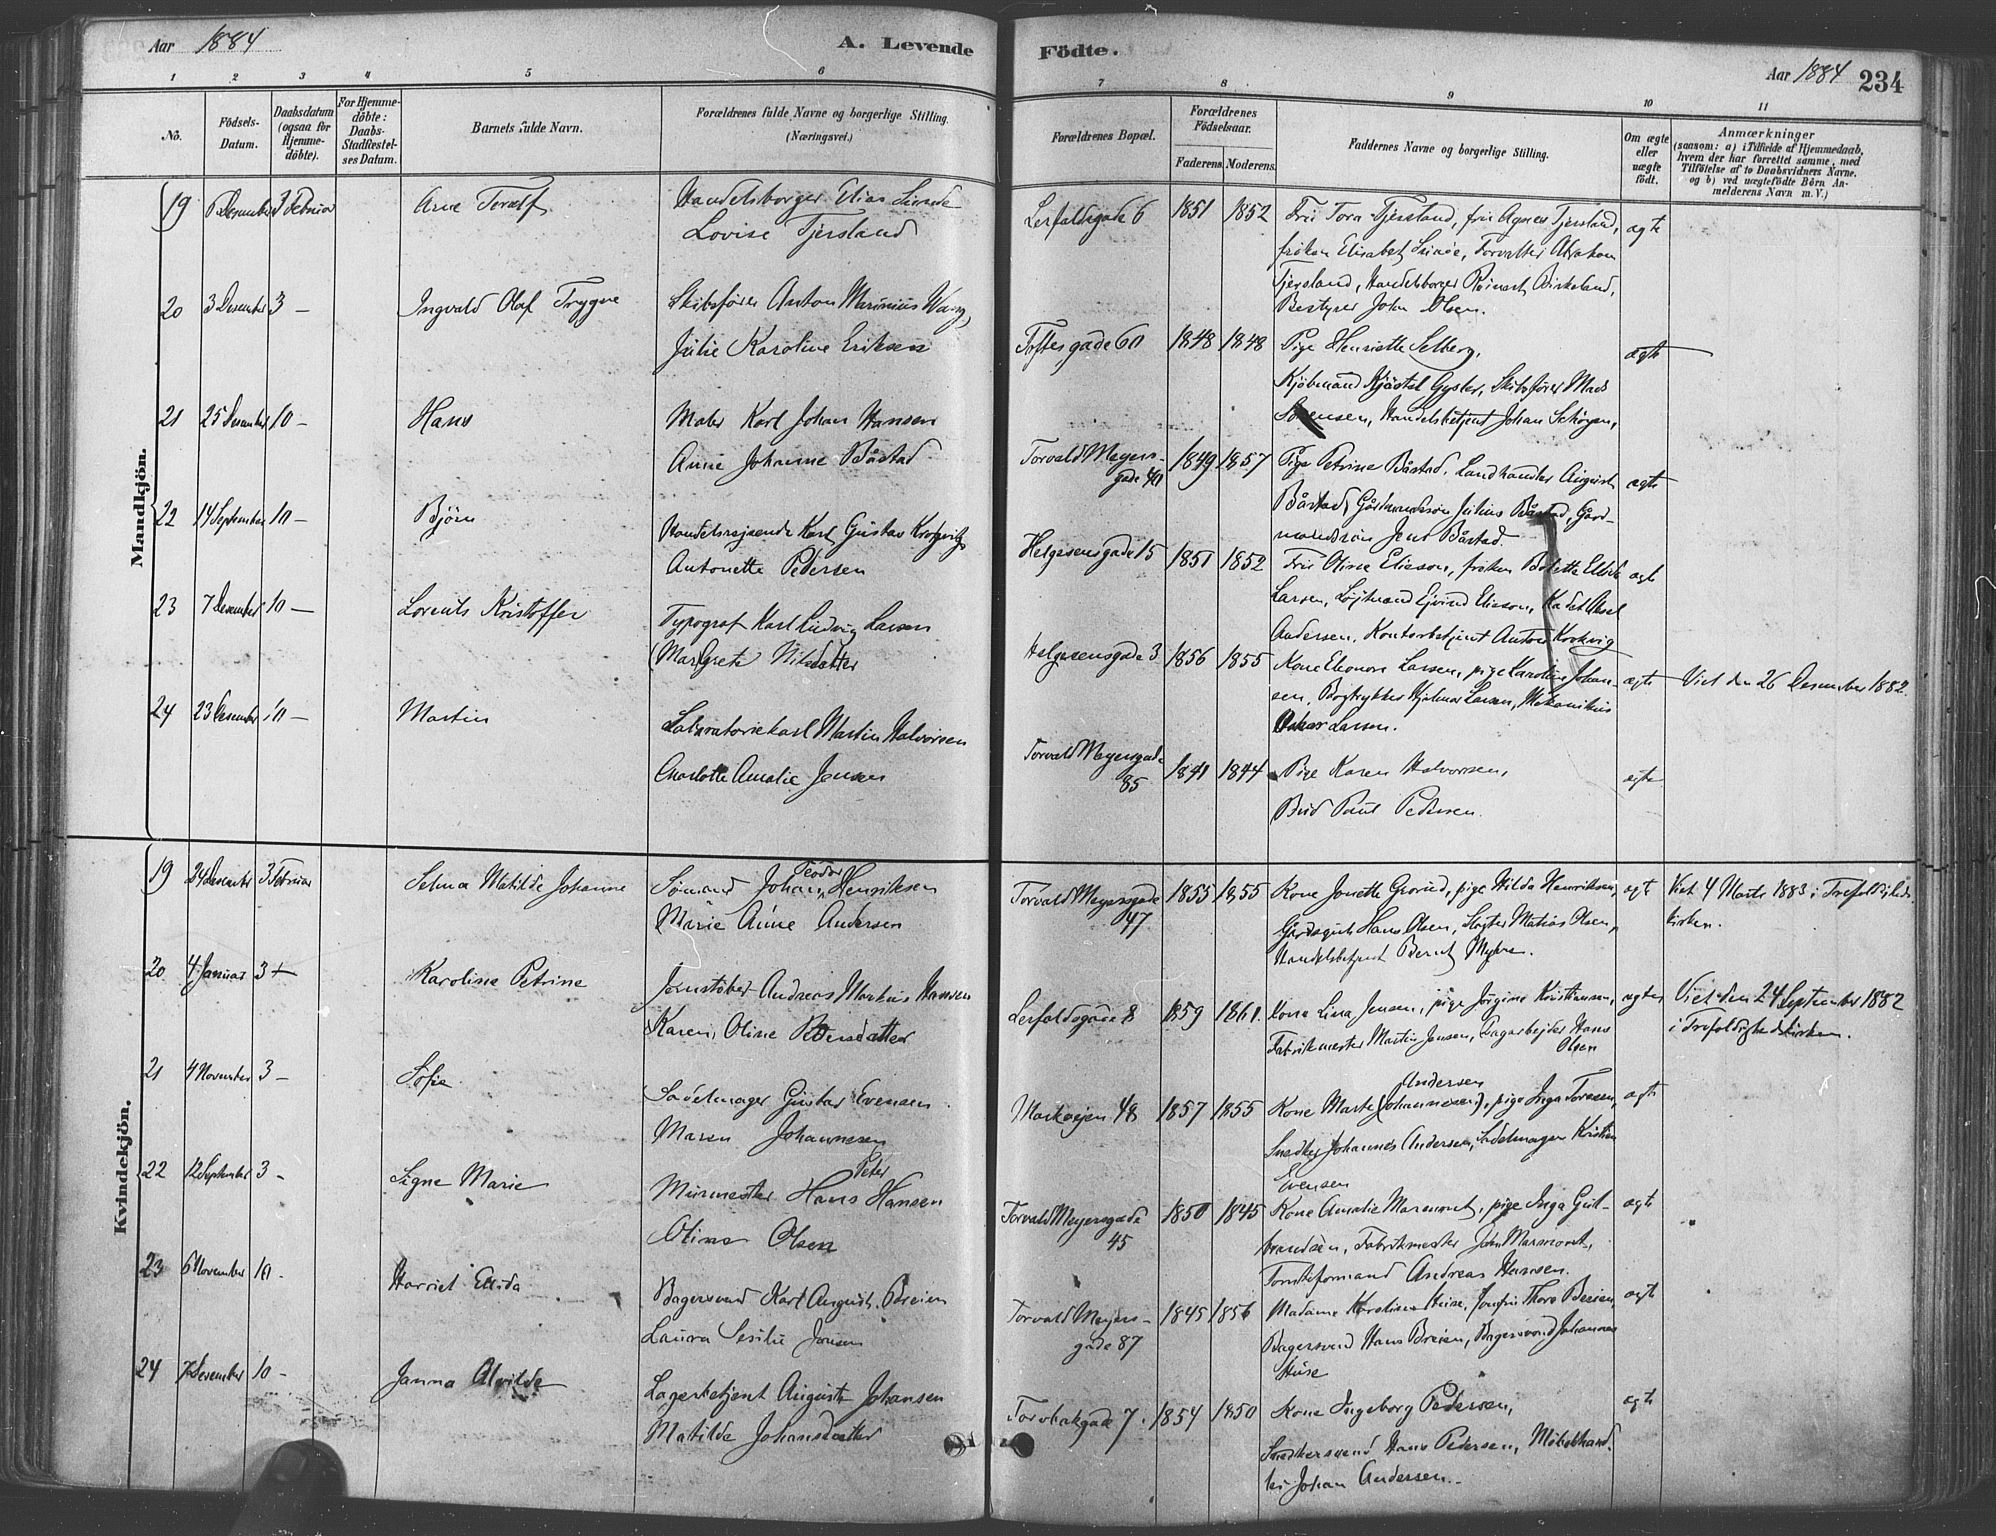 Aar 1884
A. Levende
Födte.
Aar 1884
234
1 2 3 4 5 6 7 8 9 10 11
No.
Födsels-
Datum.
Daabsdatum
(ogsaa for
Hjemme-
döbte).
For Hjemme-
döbte:
Daabs-
Stadfestel-
ses Datum.
Barnets fulde Navn.
Forældrenes fulde Navne og borgerlige Stilling.
(Næringsvei.)
Forældrenes Bopæl.
Forældrenes
Födselsaar.
Faderens. Moderens.
Faddernes Navne og borgerlige Stilling.
Om ægte
eller
uægte
födt.
Anmærkninger
(saasom: a) i Tilfælde af Hjemmedaab,
hvem der har forrettet samme, med
Tilföielse af to Daabsvidners Navne.
og b) ved uægtefödte Börn An-
melderens Navn m. V.)
Mandkjön.
19 Desember 3 Februar
Arne Toralf
Handelsborger Elias
Lovise Tjersland
Lerfaldsgade 6
1851 1852
Fru Tora Tjersland, fru Agnes Tjersland,
fröken Elisabet Forvalter Abraham
Tjersland, Handelsborger Reinart Birkeland,
Bestyrer John Olsen.
ægte
20 3 Desember 3 —
Ingvald Olaf Trygve
Skibsförer Anton Marinius Wang,
Julie Karoline Eriksen
Toftesgade 60
1848 1848
Pige Henriette Selberg,
Kjöbmand Gysler, Skibsförer Mads
Sörensen, Handelsbetjent Johan
ægte
21 25 Desember 10 —
Hans
Maler Karl Johan Hansen
Anne Johanne Båstad
Torvald Meyers-
gade 40
1849 1857
Pige Petrine Båstad, Landhandler August
Båstad, Gårdmandssön Julius Båstad, Gård-
mandssön Jens Båstad
ægte
22 14 September 10 —
Björn
Handelsrejsende Karl Gustav
Antonette Pedersen
Helgesensgade 15
1851 1852
Fru Olina Eliesen, fröken Bolette Elise
Larsen, Löjtnand Ejvind Eliesen, Kadet Aksel
Andersen, Kontorbetjent Anton
ægte
23 7 Desember 10 —
Lorents Kristoffer
Typograf Karl Ludvig Larsen
Margrete Nilsdatter
Helgesensgade 3
1856 1855
Kone Eleonora Larsen, pige Karoline Johan-
sen, Bogtrykker Hjalmar Larsen, Mekanikus
Oskar Larsen.
ægte
Viet den 26 Desember 1882.
24 23 Desember 10 —
Martin
Laboratoriekarl Martin Halvorsen
Charlotte Amalie Jensen
Torvald Meyersgade
85
1841 1844
Pige Karen Halvorsen,
Bud Paul Pedersen.
ægte
Kvindekjön.
19 24 Desember 3 Februar
Selma Matilde Johanne
Sömand Johan Teodor Henriksen
Marie Anne Andersen
Torvald Meyersgade
47
1855 1855
Kone Jonette Grorud, pige Hilda Henriksen,
Gårdsgut Hans Olsen, Slagter Matias Olsen,
Handelsbetjent Bernt Myhre.
ægt
Viet 4 Marts 1883 i Trefoldigheds-
kirken.
20 4 Januar 3 —
Karoline Petrine
Jernstöber Andreas Markus Hansen
Karen Oline Pedersdatter
Lerfaldsgade 8
1859 1861.
Kone Lina Jensen, pige Jörgine Kristiansen,
Fabrikmester Martin Jensen, Dagarbejder Hans
Olsen
ægte
Viet den 24 September 1882
i Trefoldighedskirken.
21 4 November 3 —
Sofie
Sadelmager Gustav Evensen
Maren Johannesen
Markvejen 48
1857 1855
Kone Marte Andersen (Johannesen), pige Inga Toresen,
Snedker Johannes Andersen, Sadelmager Kristian
Evensen
ægt
22 12 September 3 —
Signe Marie
Murmester Hans Peter Hansen
Oline Olsen
Torvald Meyersgade
45
1850 1845
Kone Amalie Marmont, pige Inga Gul-
brandsen, Fabrikmester John Marmont,
Tomteformand Andreas Hansen.
ægt
23 6 November 10 —
Harriet Elida
Bagersvend Karl August Breien
Laura Sesilie Jensen
Torvald Meyers-
gade 87
1845 1856
Madame Karoline Huse, Jomfru Thora Breien,
Bagersvend Hans Breien, Bagersvend Johannes
Huse
ægt
24 7 Desember 10 —
Janna Alvilde
Lagerbetjent August Johansen
Matilde Johansdatter
Torvbakgade 7.
1854 1850
Kone Ingeborg Pedersen,
Snedkersvend Hans Pedersen, Möbelhand-
ler Johan Andersen.
ægt